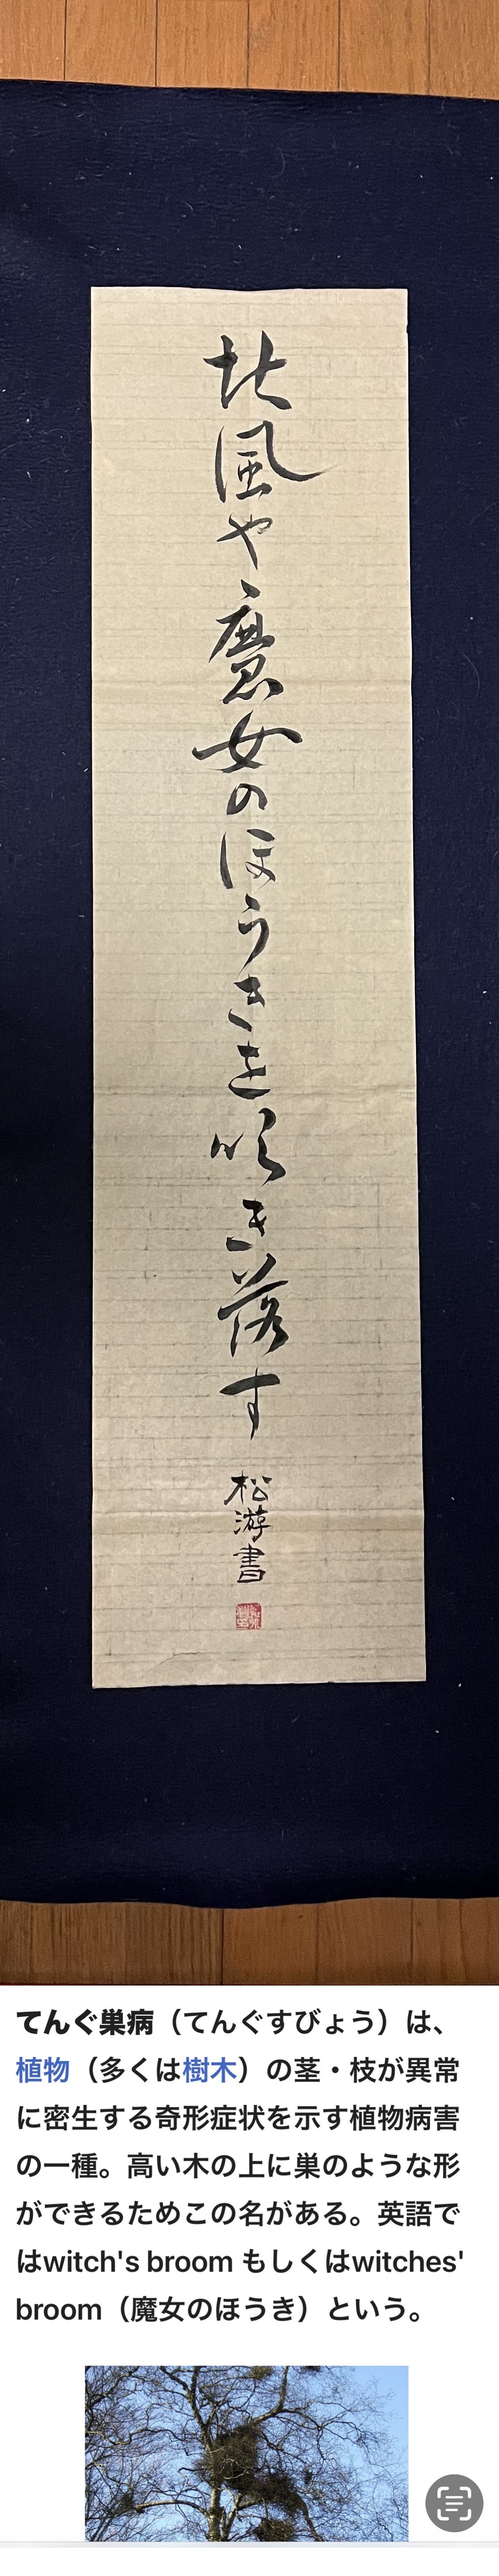 北風や魔女のほうきを吹き落す
松游書
てんぐ巣病（てんぐすびょう）は、
植物（多くは樹木）の茎・枝が異常
に密生する奇形症状を示す植物病害
の一種。高い木の上に巣のような形
ができるためこの名がある。英語で
はwitch's broom もしくはwitches'
broom（魔女のほうき）という。